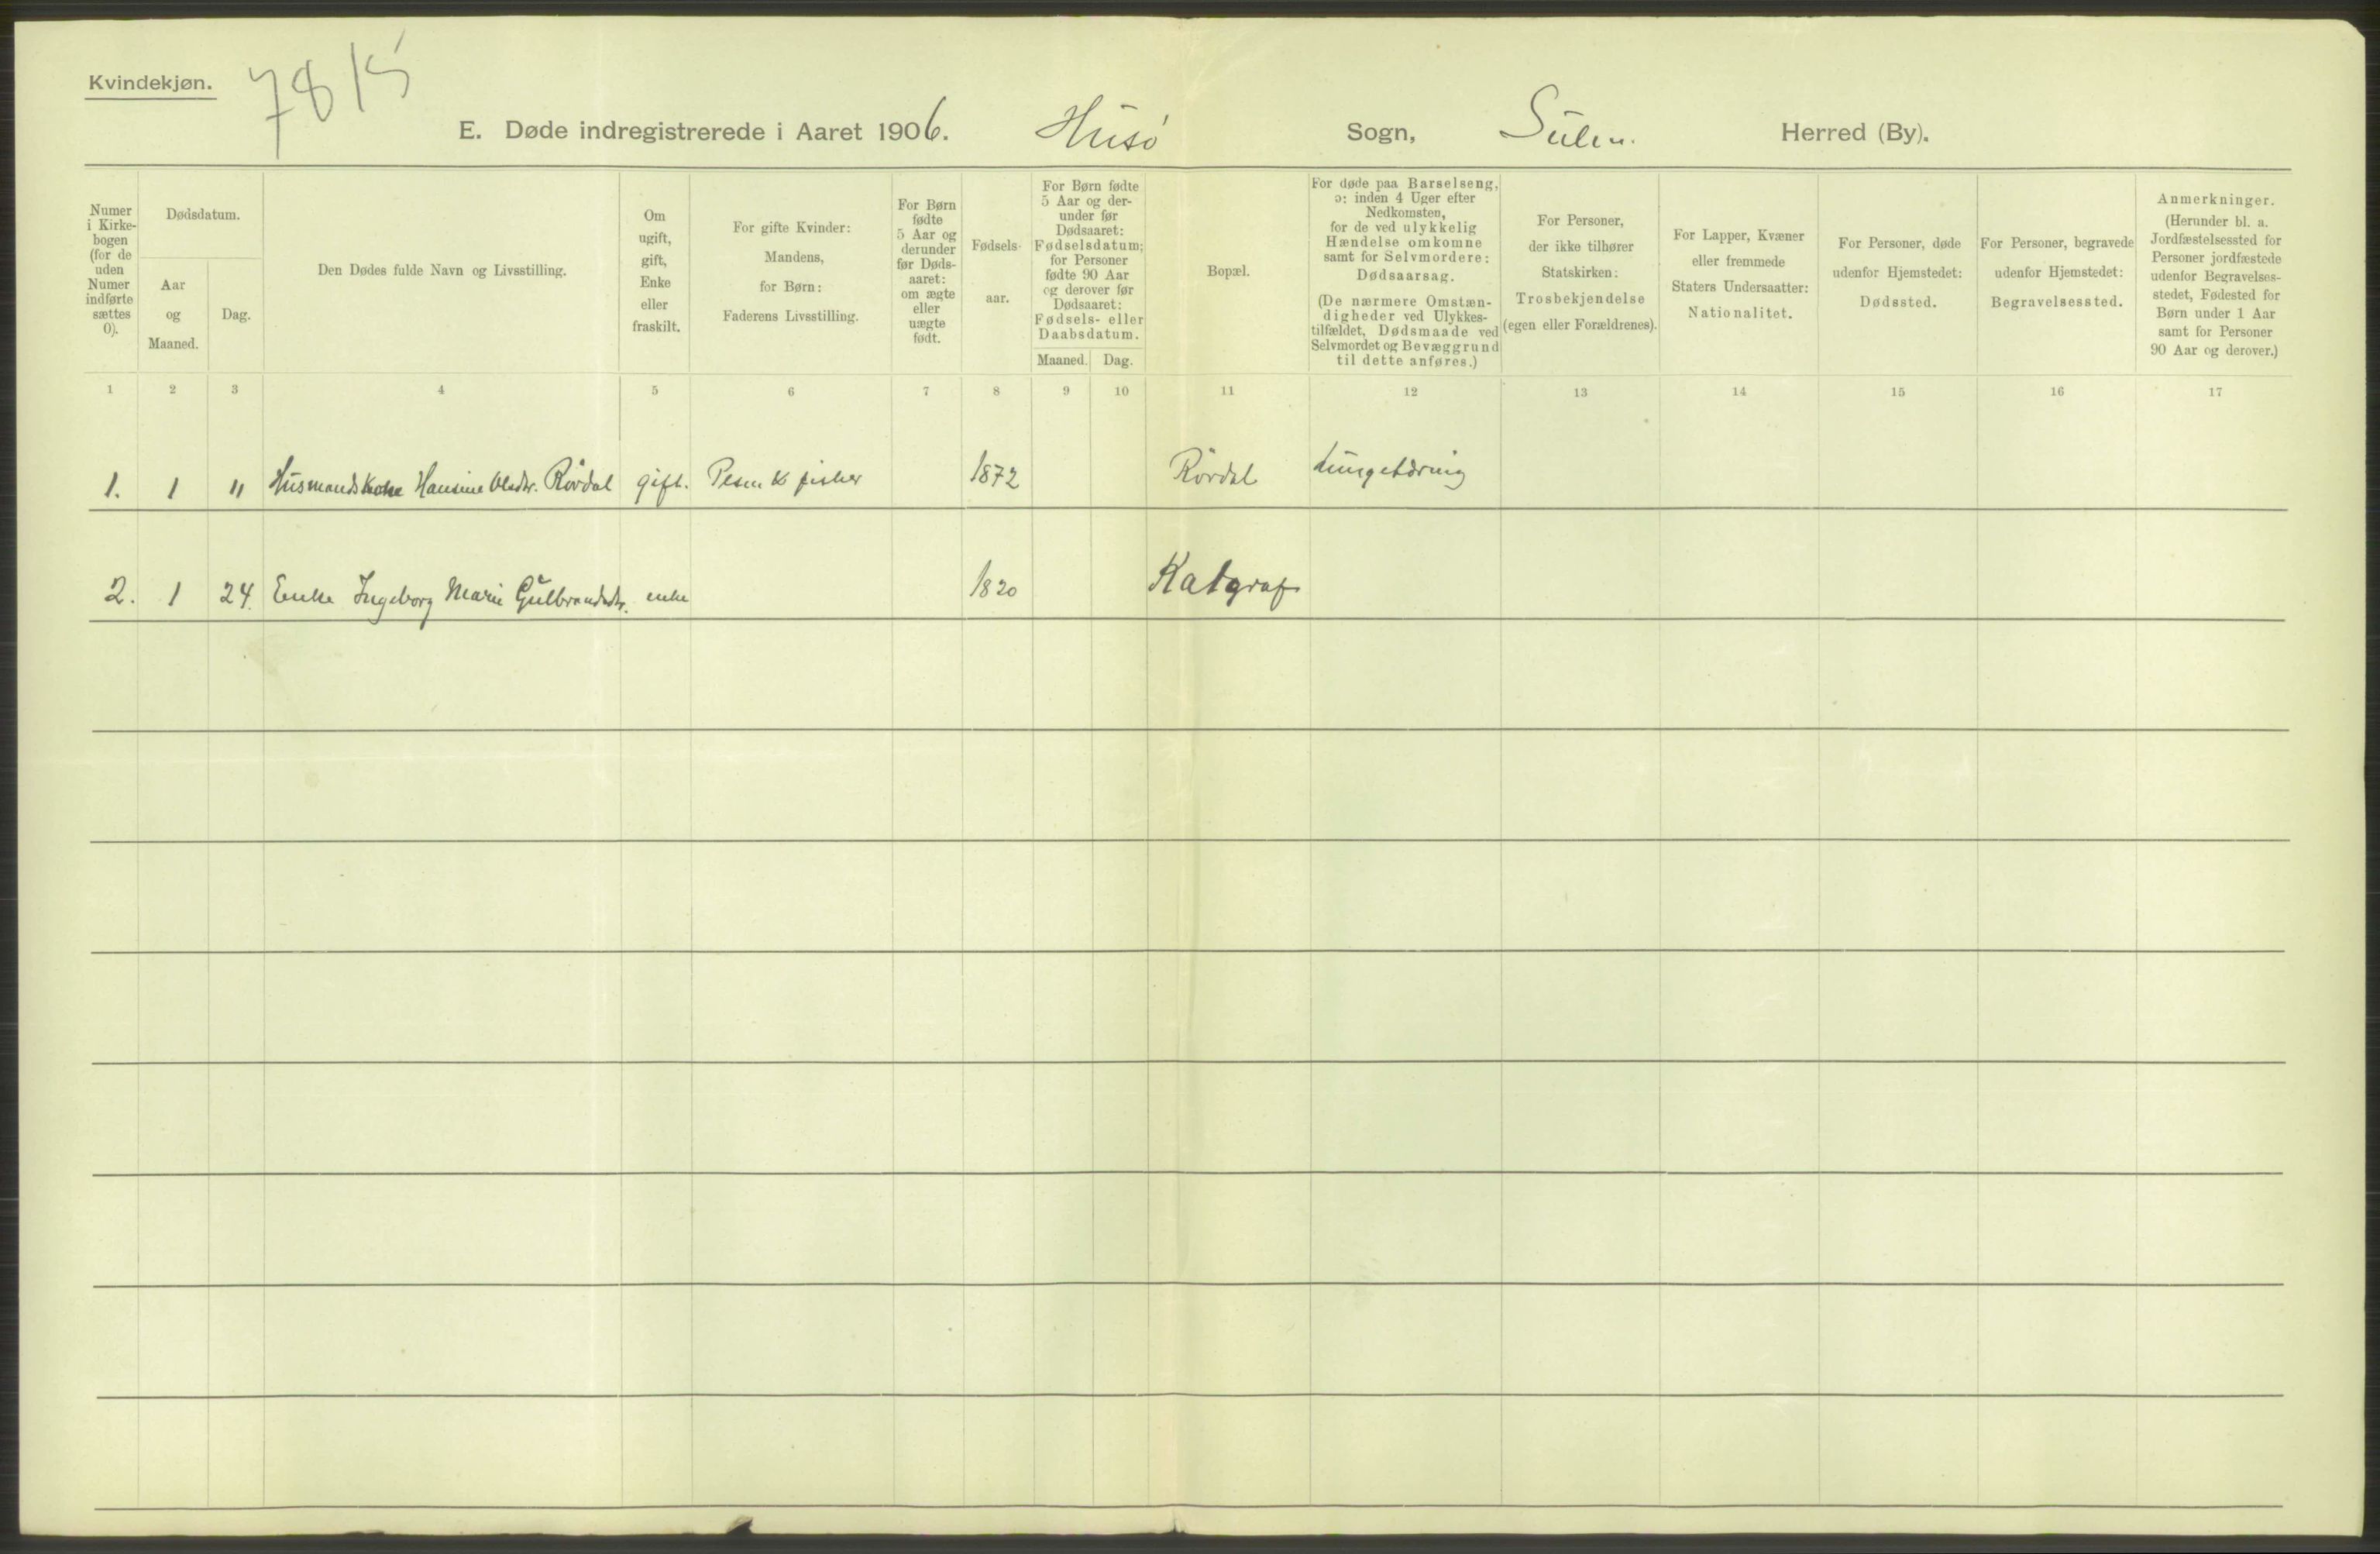 Kvindekjøn.
7815
E. Døde indregistrerede i Aaret 1906. Husø Sogn, Sulen. Herred (By).
Numer i Kirkebogen (for de uden Numer indførte sættes 0).
Dødsdatum.
Aar og Maaned.
Dag.
Den Dødes fulde Navn og Livsstilling.
Om ugift, gift, Enke eller fraskilt.
For gifte Kvinder: Mandens, for Børn: Faderens Livsstilling.
For Børn fødte 5 Aar og derunder før Dødsaaret: om ægte eller uægte født.
Fødselsaar.
For Børn fødte 5 Aar og derunder før Dødsaaret: Fødselsdatum; for Personer fødte 90 Aar og derover før Dødsaaret: Fødsels- eller Daabsdatum.
Maaned. Dag.
Bopæl.
For døde paa Barselseng, ɔ: inden 4 Uger efter Nedkomsten, for de ved ulykkelig Hændelse omkomne samt for Selvmordere: Dødsaarsag.
(De nærmere Omstændigheder ved Ulykkestilfældet, Dødsmaade ved Selvmordet og Bevæggrund til dette anføres.)
For Personer, der ikke tilhører Statskirken: Trosbekjendelse (egen eller Forældrenes).
For Lapper, Kvæner eller fremmede Staters Undersaatter: Nationalitet.
For Personer, døde udenfor Hjemstedet: Dødssted.
For Personer, begravede udenfor Hjemstedet: Begravelsessted.
Anmerkninger. (Herunder bl. a. Jordfæstelsessted for Personer jordfæstede udenfor Begravelsesstedet, Fødested for Børn under 1 Aar samt for Personer 90 Aar og derover.)
1 2 3 4 5 6 7 8 9 10 11 12 13 14 15 16 17
1. 1 11 Husmandskone Hansine Olsdtr. Rørdal gift. fisker 1872 Rørdal Lungetæring
2. 1 24. Enke Ingeborg Marie Gulbrandsdtr. enke 1820 Katgraf